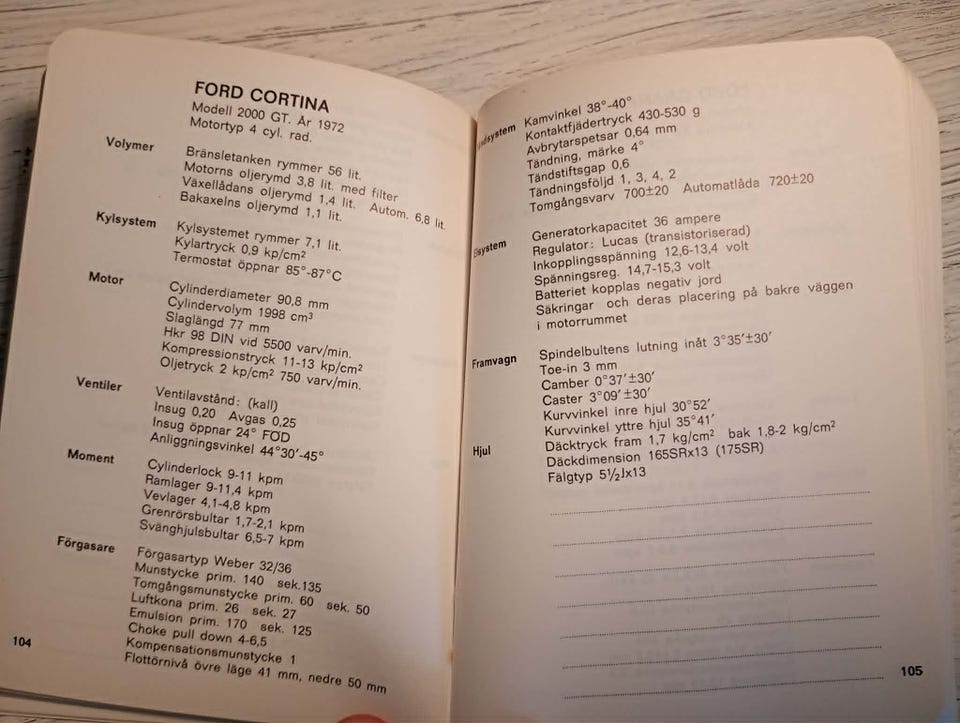 FORD CORTINA
Modell 2000 GT. År 1972
Motortyp 4 cyl. rad.
Volymer
Bränsletanken rymmer 56 lit.
Motorns oljerymd 3,8 lit. med filter
Växellådans oljerymd 1,4 lit. Autom. 6,8 lit.
Bakaxelns oljerymd 1,1 lit.
Kylsystem
Kylsystemet rymmer 7,1 lit.
Kylartryck 0,9 kp/cm²
Termostat öppnar 85°-87°C
Motor
Cylinderdiameter 90,8 mm
Cylindervolym 1998 cm³
Slaglängd 77 mm
Hkr 98 DIN vid 5500 varv/min.
Kompressionstryck 11-13 kp/cm²
Oljetryck 2 kp/cm² 750 varv/min.
Ventiler
Ventilavstånd: (kall)
Insug 0,20 Avgas 0,25
Insug öppnar 24° FÖD
Anliggningsvinkel 44°30′-45°
Moment
Cylinderlock 9-11 kpm
Ramlager 9-11,4 kpm
Vevlager 4,1-4,8 kpm
Grenrörsbultar 1,7-2,1 kpm
Svänghjulsbultar 6,5-7 kpm
Förgasare
Förgasartyp Weber 32/36
Munstycke prim. 140 sek.135
Tomgångsmunstycke prim. 60 sek. 50
Luftkona prim. 26 sek. 27
Emulsion prim. 170 sek. 125
Choke pull down 4-6,5
Kompensationsmunstycke 1
Flottörnivå övre läge 41 mm, nedre 50 mm
104
ndsystem
Kamvinkel 38°-40°
Kontaktfjädertryck 430-530 g
Avbrytarspetsar 0,64 mm
Tändning, märke 4°
Tändstiftsgap 0.6
Tändningsföljd 1, 3, 4, 2
Tomgångsvarv 700±20 Automatlåda 720±20
Elsystem
Generatorkapacitet 36 ampere
Regulator: Lucas (transistoriserad)
Inkopplingsspänning 12,6-13,4 volt
Spänningsreg. 14,7-15,3 volt
Batteriet kopplas negativ jord
Säkringar och deras placering på bakre väggen
i motorrummet
Framvagn
Spindelbultens lutning inåt 3°35′±30′
Toe-in 3 mm
Camber 0°37′±30′
Caster 3°09′±30′
Kurvvinkel inre hjul 30°52′
Kurvvinkel yttre hjul 35°41′
Hjul
Däcktryck fram 1,7 kg/cm² bak 1,8-2 kg/cm²
Däckdimension 165SRx13 (175SR)
Fälgtyp 5½Jx13
105